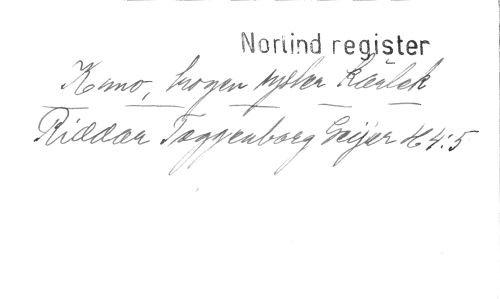 Norlind register
Kuno, trogen syster kärlek
Riddar Toggenborg Geijer H 4:5